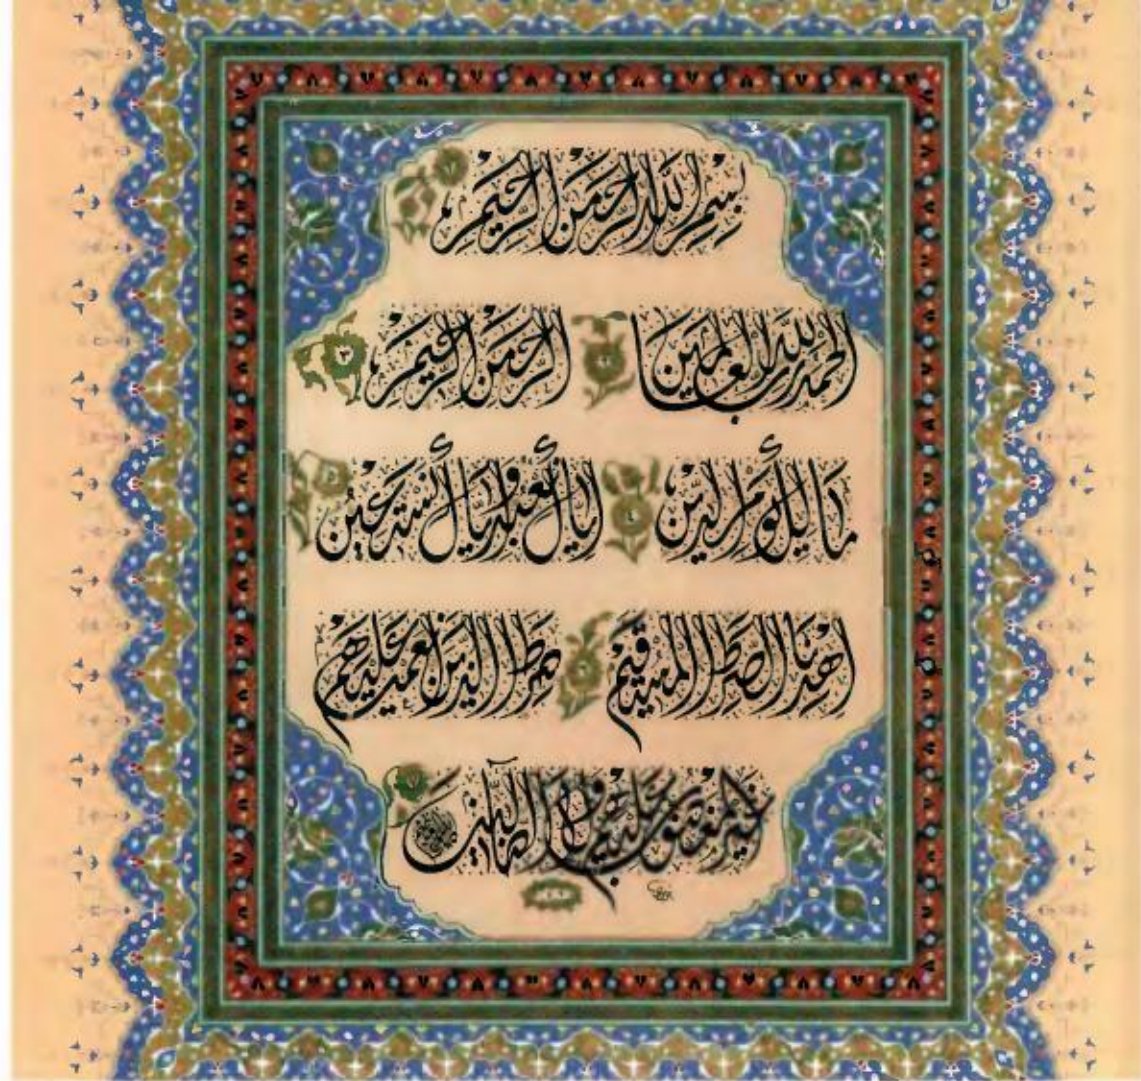 بِسْمِ اللَّهِ الرَّحْمَنِ الرَّحِيمِ ١
الحمد لله رب العالمين ٢ الرحمن الرحيم ٣
مالك يوم الدين ٤ إياك نعبد وإياك نستعين
اهدنا الصراط المستقيم صراط الذين أنعمت عليهم
غير المغضوب عليهم ولا الضالين